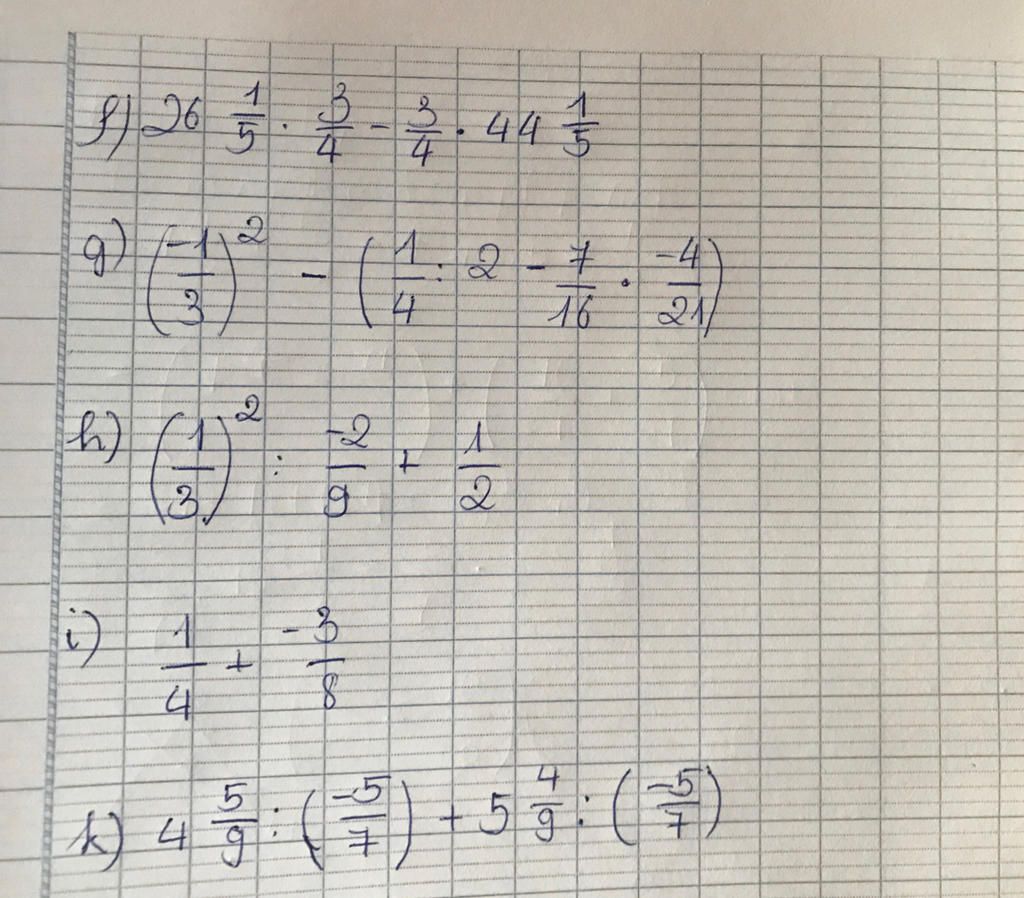 f) 26 1/5 . 3/4 - 3/4 . 44 1/5
g) (-1/3)^2 - (1/4 : 2 - 7/16 . -4/21)
h) (1/3)^2 : -2/9 + 1/2
i) 1/4 + -3/8
k) 4 5/9 : (-5/7) + 5 4/9 : (-5/7)